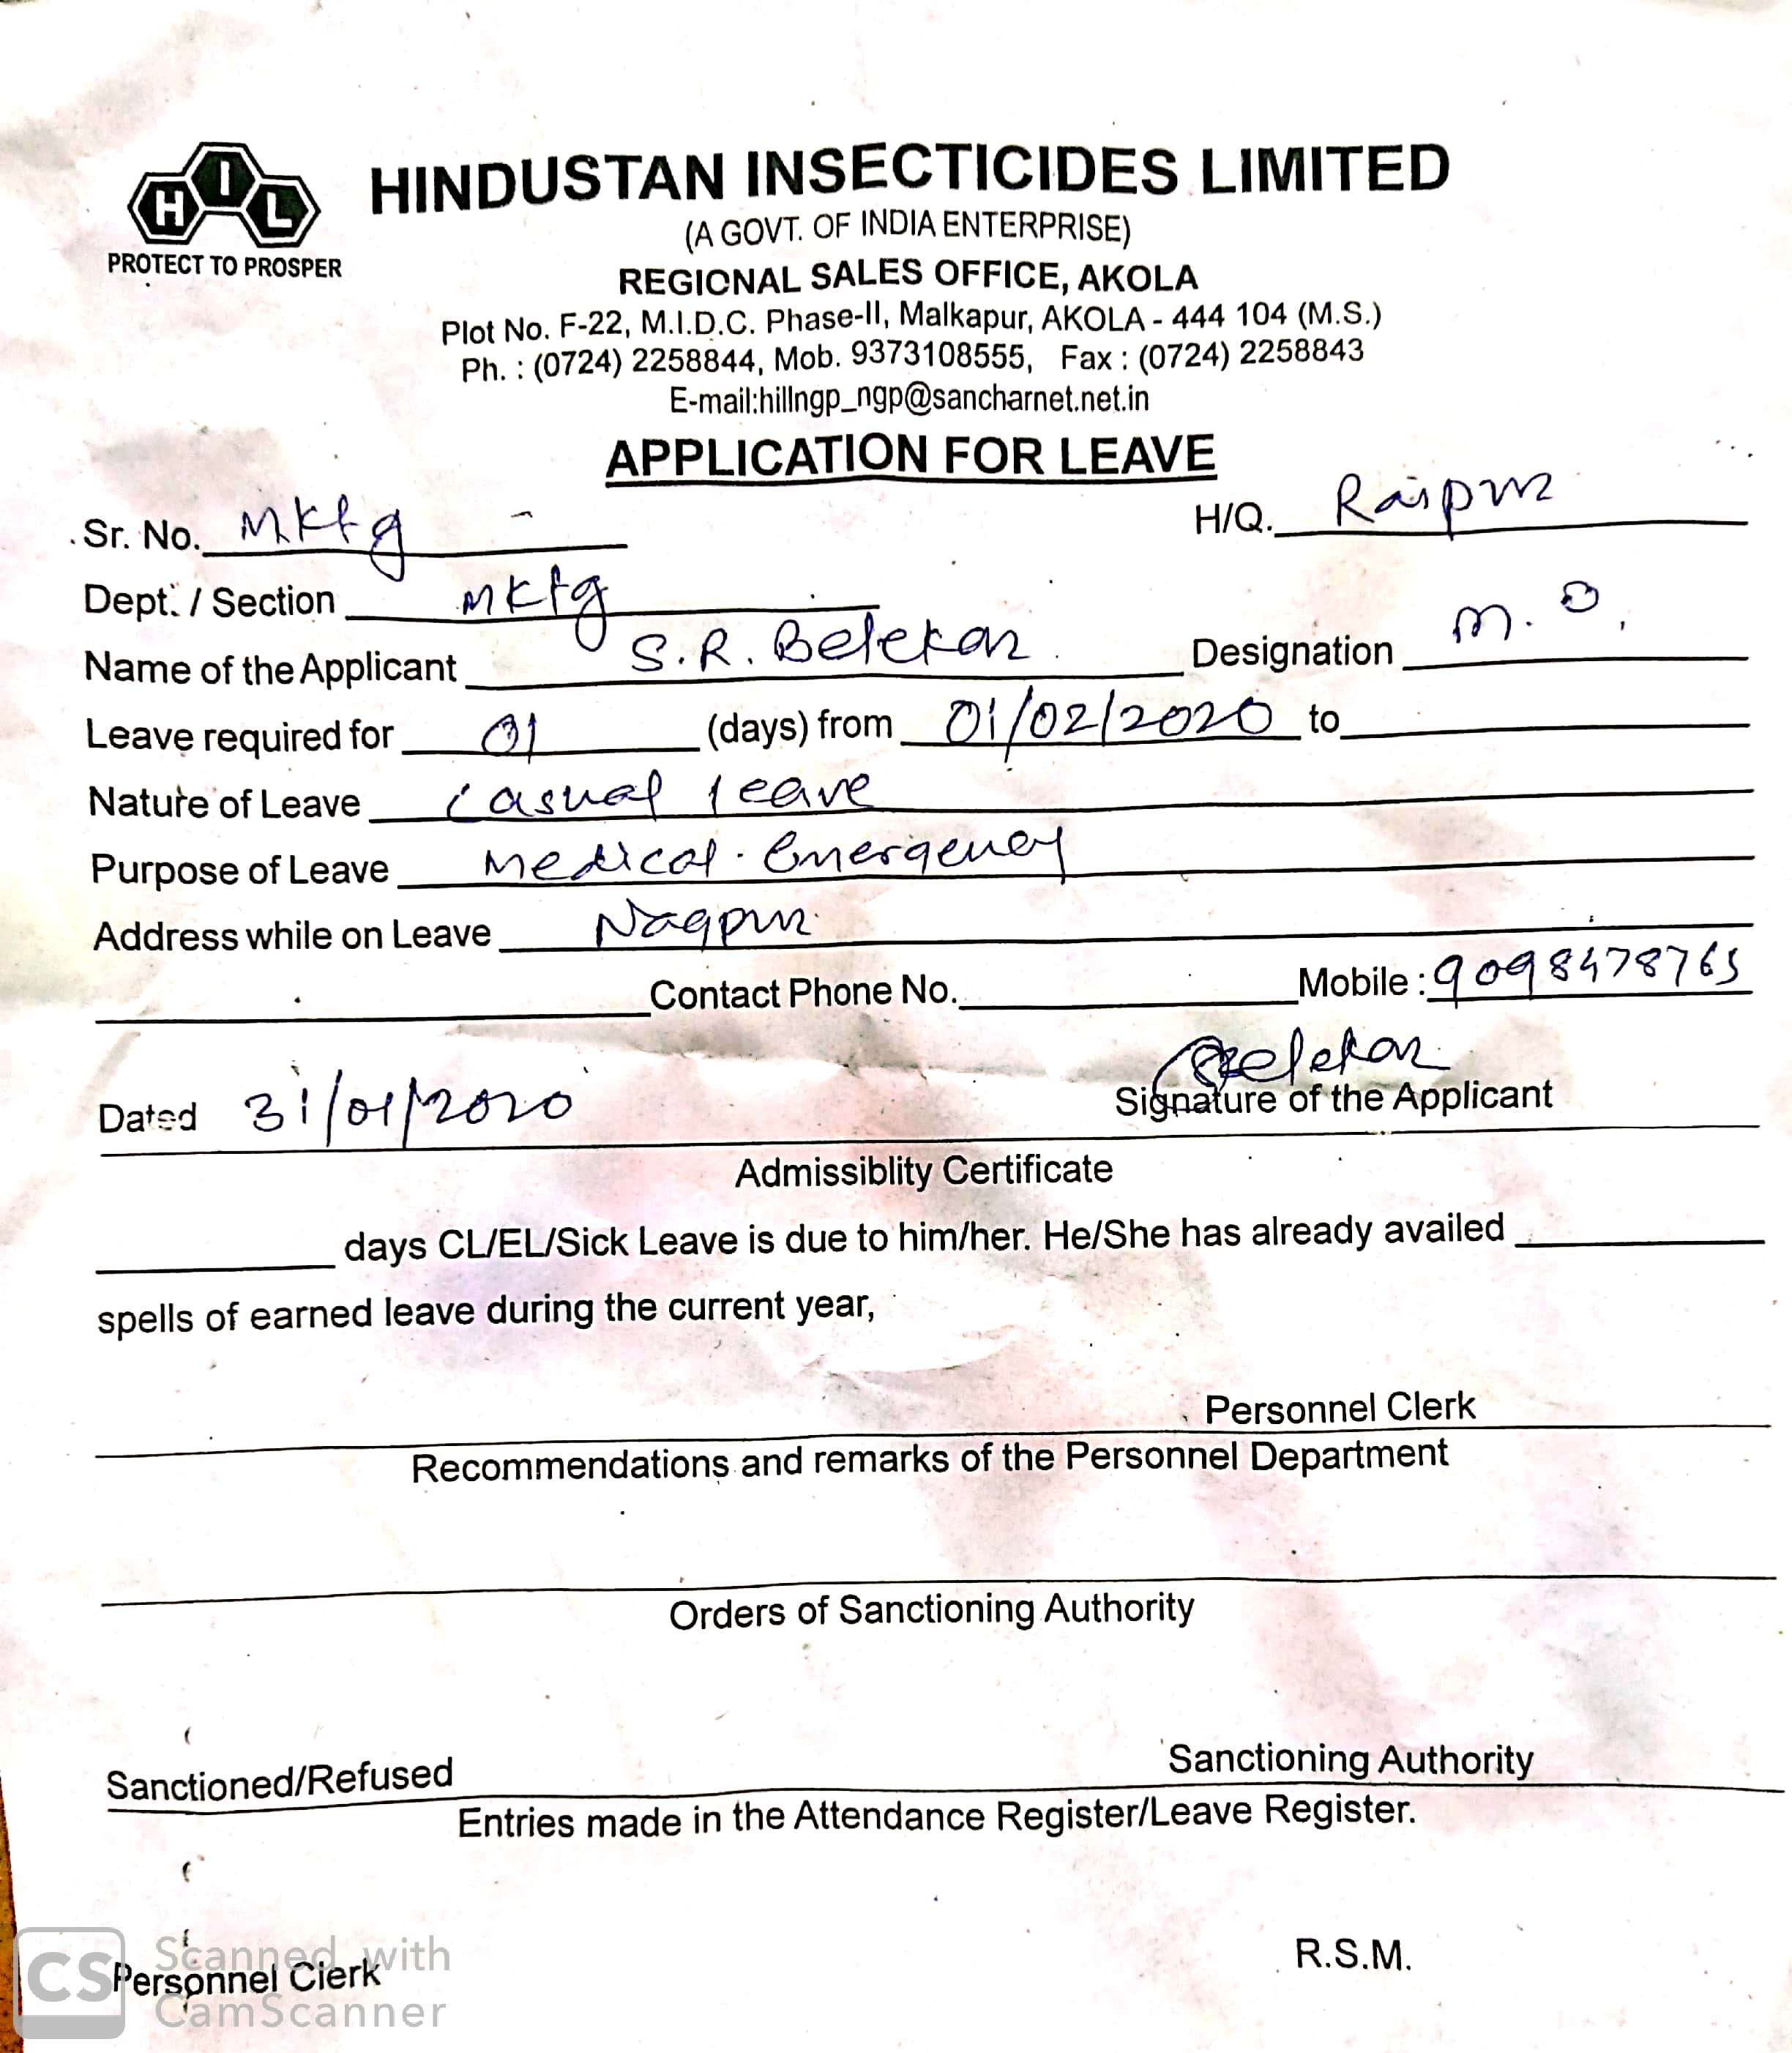 HIL
PROTECT TO PROSPER
HINDUSTAN INSECTICIDES LIMITED
(A GOVT. OF INDIA ENTERPRISE)
REGIONAL SALES OFFICE, AKOLA
Plot No. F-22, M.I.D.C. Phase-II, Malkapur, AKOLA - 444 104 (M.S.)
Ph. : (0724) 2258844, Mob. 9373108555, Fax : (0724) 2258843
E-mail:hillngp_ngp@sancharnet.net.in
APPLICATION FOR LEAVE
Sr. No. Mktg - H/Q. Raipur
Dept. / Section Mktg
Name of the Applicant S.R. Belekar Designation M.O.
Leave required for 01 (days) from 01/02/2020 to
Nature of Leave Casual leave
Purpose of Leave Medical Emergency
Address while on Leave Nagpur
Contact Phone No. Mobile : 9098478765
Dated 31/01/2020 Belekar
Signature of the Applicant
Admissiblity Certificate
days CL/EL/Sick Leave is due to him/her. He/She has already availed
spells of earned leave during the current year,
Personnel Clerk
Recommendations and remarks of the Personnel Department
Orders of Sanctioning Authority
Sanctioned/Refused Sanctioning Authority
Entries made in the Attendance Register/Leave Register.
Personnel Clerk R.S.M.
CS Scanned with
CamScanner